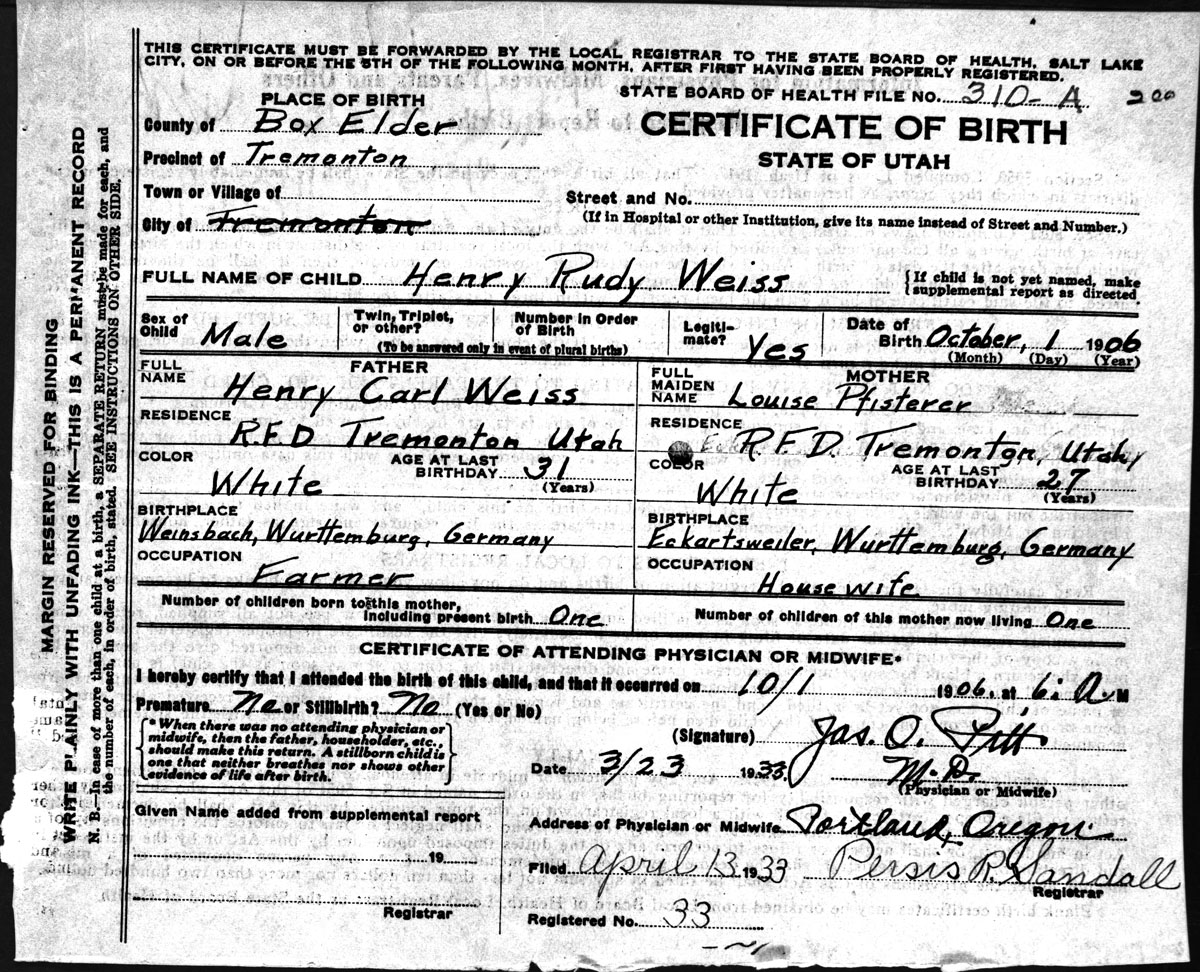 THIS CERTIFICATE MUST BE FORWARDED BY THE LOCAL REGISTRAR TO THE STATE BOARD OF HEALTH, SALT LAKE
CITY, ON OR BEFORE THE 5TH OF THE FOLLOWING MONTH, AFTER FIRST HAVING BEEN PROPERLY REGISTERED.
STATE BOARD OF HEALTH FILE NO. 310-A 200
PLACE OF BIRTH
CERTIFICATE OF BIRTH
STATE OF UTAH
County of Box Elder
Precinct of Tremonton
Town or Village of
Street and No.
City of Tremonton
(If in Hospital or other Institution, give its name instead of Street and Number.)
FULL NAME OF CHILD Henry Rudy Weiss
{If child is not yet named, make
supplemental report as directed
Sex of Child Male
Twin, Triplet, or other?
Number in Order of Birth
(To be answered only in event of plural births)
Legiti-mate? Yes
Date of Birth October, 1 1906
(Month) (Day) (Year)
FATHER
FULL NAME Henry Carl Weiss
MOTHER
FULL MAIDEN NAME Louise Pfisterer
RESIDENCE R.F.D Tremonton Utah
RESIDENCE R.F.D. Tremonton, Utah
COLOR White
AGE AT LAST BIRTHDAY 31 (Years)
COLOR White
AGE AT LAST BIRTHDAY 27 (Years)
BIRTHPLACE
Weinsbach, Wurttemburg, Germany
BIRTHPLACE
Eckartsweiler, Wurttemburg, Germany
OCCUPATION Farmer
OCCUPATION House wife
Number of children born to this mother, including present birth One
Number of children of this mother now living One
CERTIFICATE OF ATTENDING PHYSICIAN OR MIDWIFE*
I hereby certify that I attended the birth of this child, and that it occurred on 10/1 1906, at 6: A.M
Premature No or Stillbirth? No (Yes or No)
{* When there was no attending physician or
midwife, then the father, householder, etc.,
should make this return. A stillborn child is
one that neither breathes nor shows other
evidence of life after birth.}
(Signature) Jas. O. Pitt
M.D.
(Physician or Midwife)
Date 3/23 1933.
Given Name added from supplemental report
19
Registrar
Address of Physician or Midwife Portland, Oregon
Filed April 13 1933 Persis R. Sandall
Registrar
Registered No. 33
MARGIN RESERVED FOR BINDING
WRITE PLAINLY WITH UNFADING INK—THIS IS A PERMANENT RECORD
N. B.—In case of more than one child at a birth, a SEPARATE RETURN must be made for each, and
the number of each, in order of birth, stated. SEE INSTRUCTIONS ON OTHER SIDE.